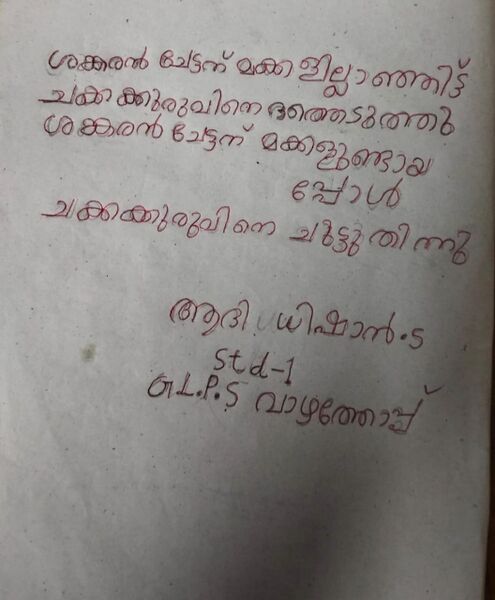 ശങ്കരൻ ചേട്ടന് മക്ക ളില്ലാഞ്ഞിട്ട്
ചക്കക്കുരുവിനെ ദത്തെടുത്തു
ശങ്കരൻ ചേട്ടന് മക്കളുണ്ടായ
പ്പോൾ
ചക്കക്കുരുവിനെ ചുട്ടു തിന്നു
ആദി ധിഷാൻ.S
Std-1
G.L.P.S വാഴത്തോപ്പ്